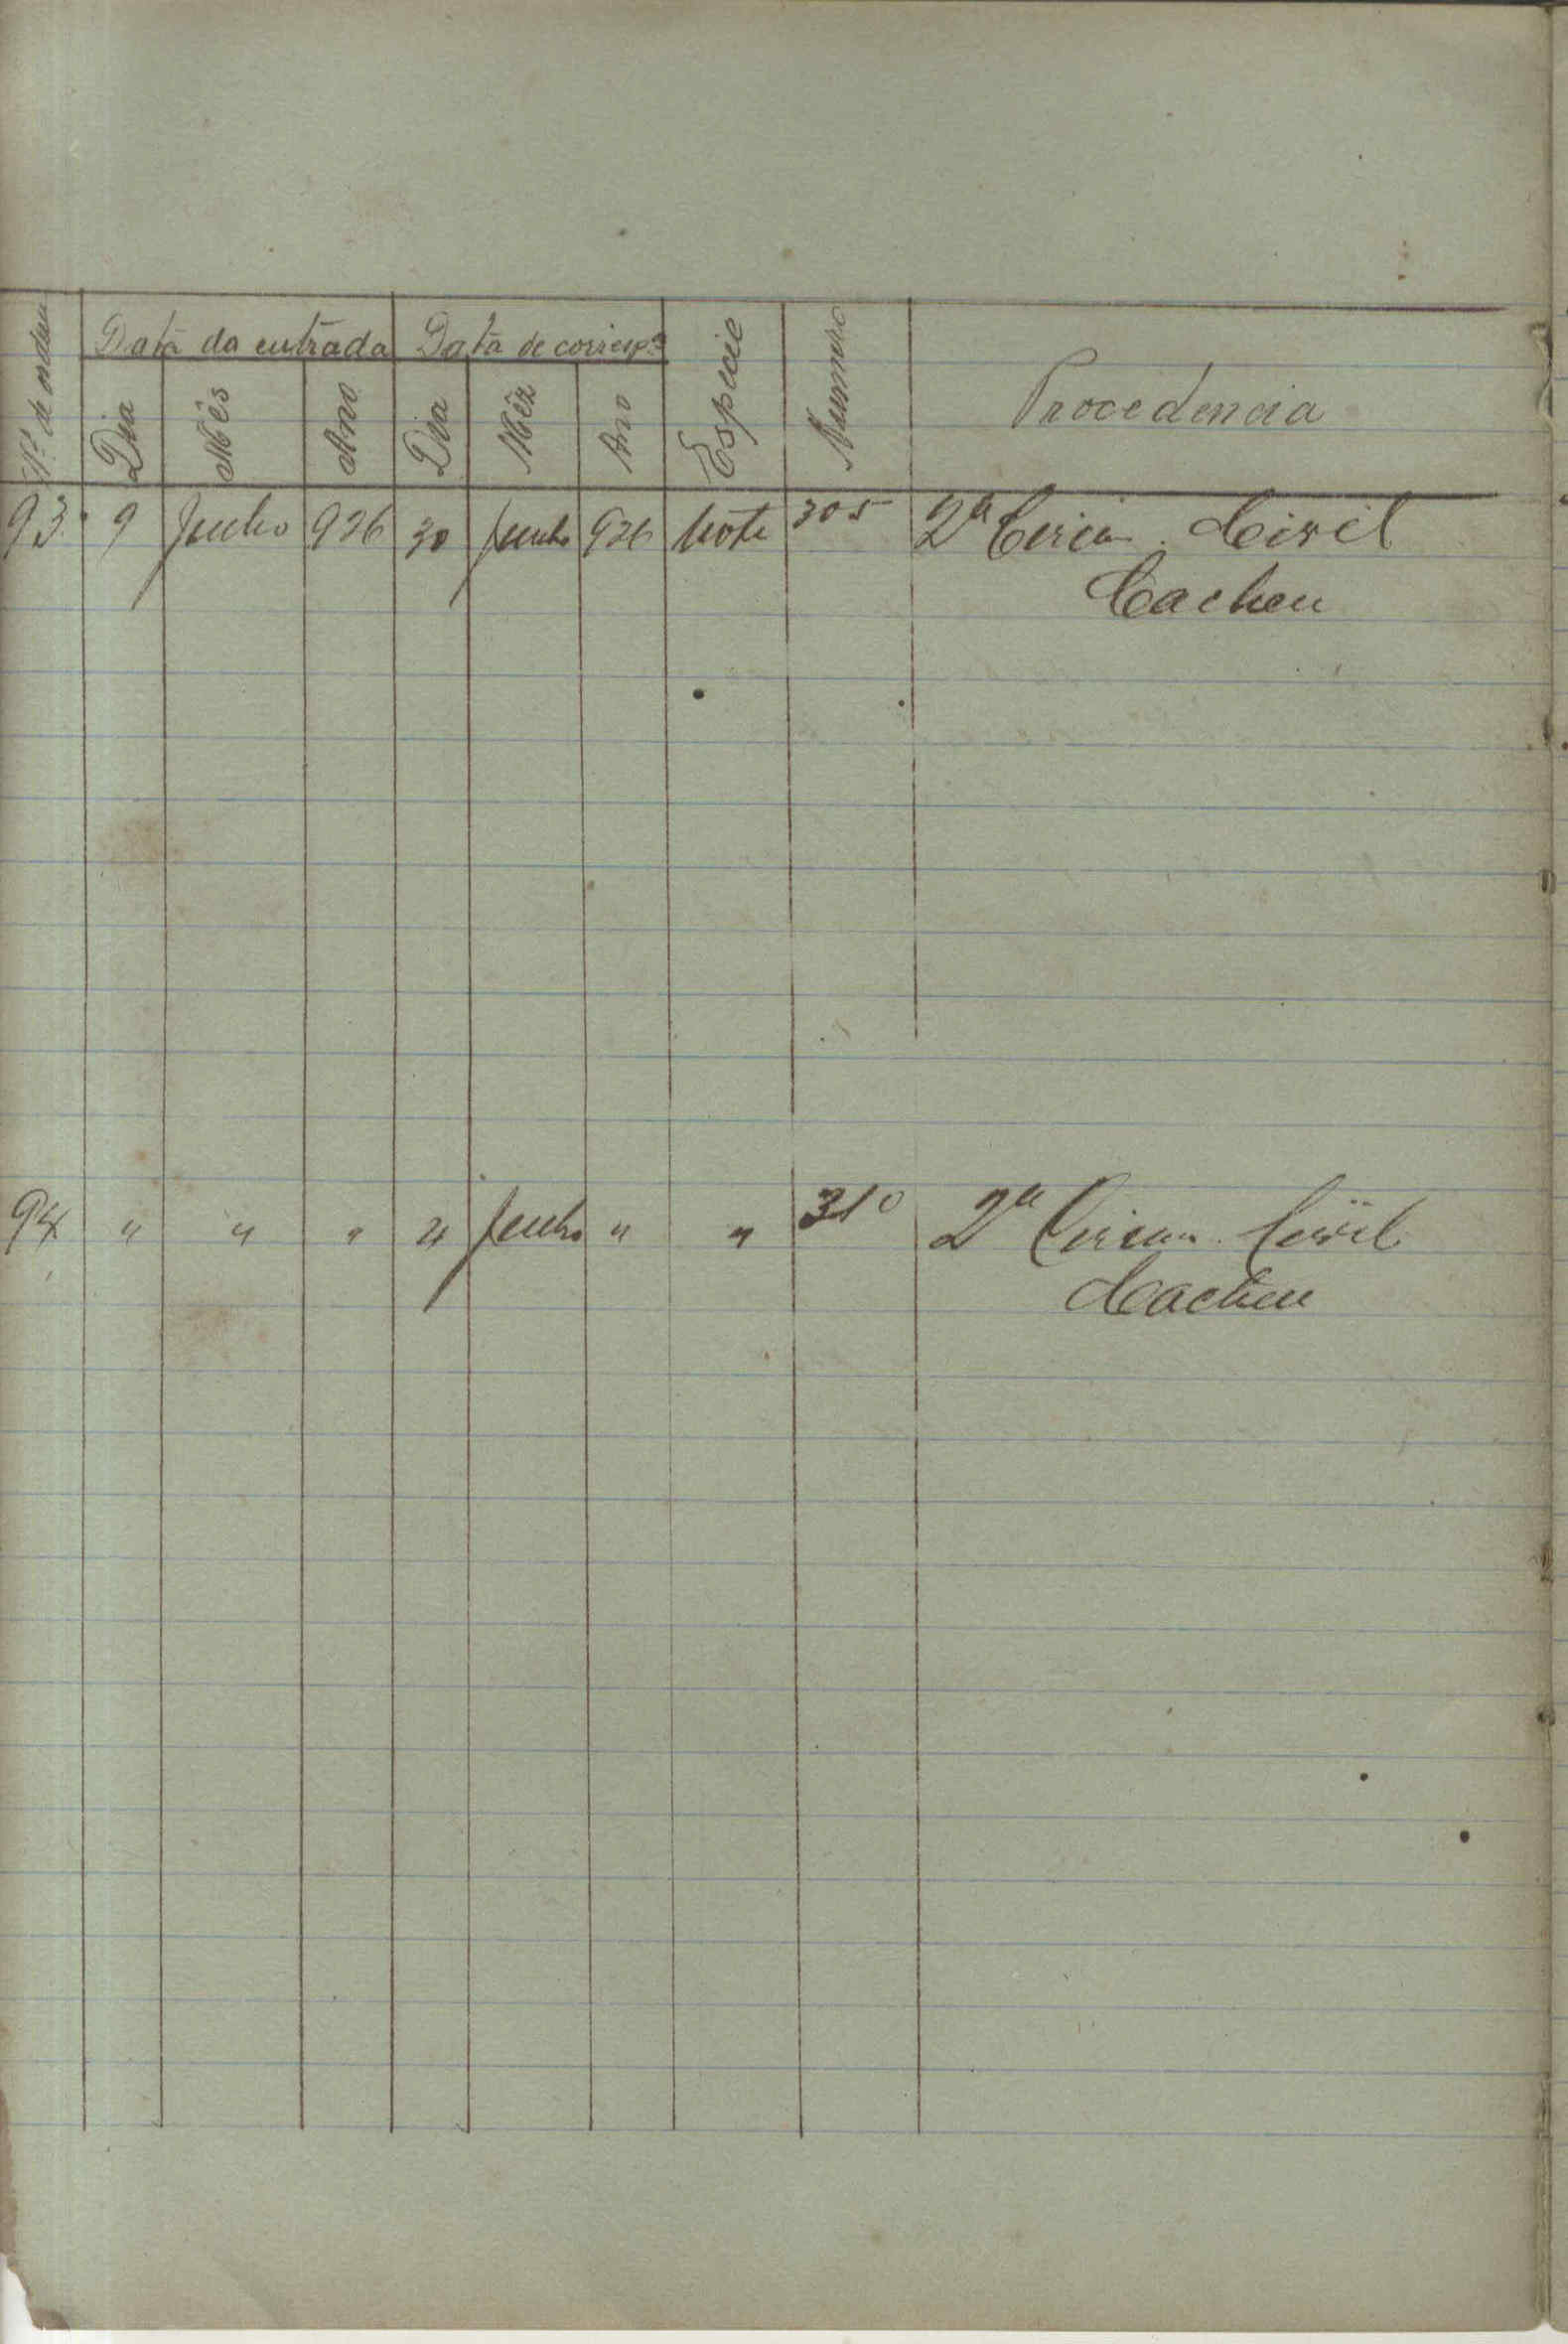 Nº de ordem
Data da entrada
Data de corresp.ª
Especie
Numero
Procedencia
Dia
Mês
Ano
Dia
Mêz
Ano
93 9 Junho 926 30 Junho 926 Nota 305 2ª Circun. Civil
Cacheu
94 " " " " Junho " " 310 2ª Circun. Civil
Cacheu